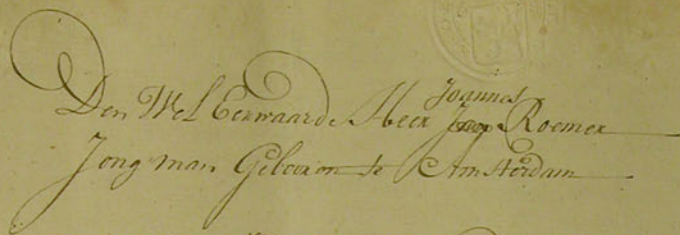 Den Wel Eerwaarde Heer Joannes Roemer
Jong man Gebooren te Amsterdam